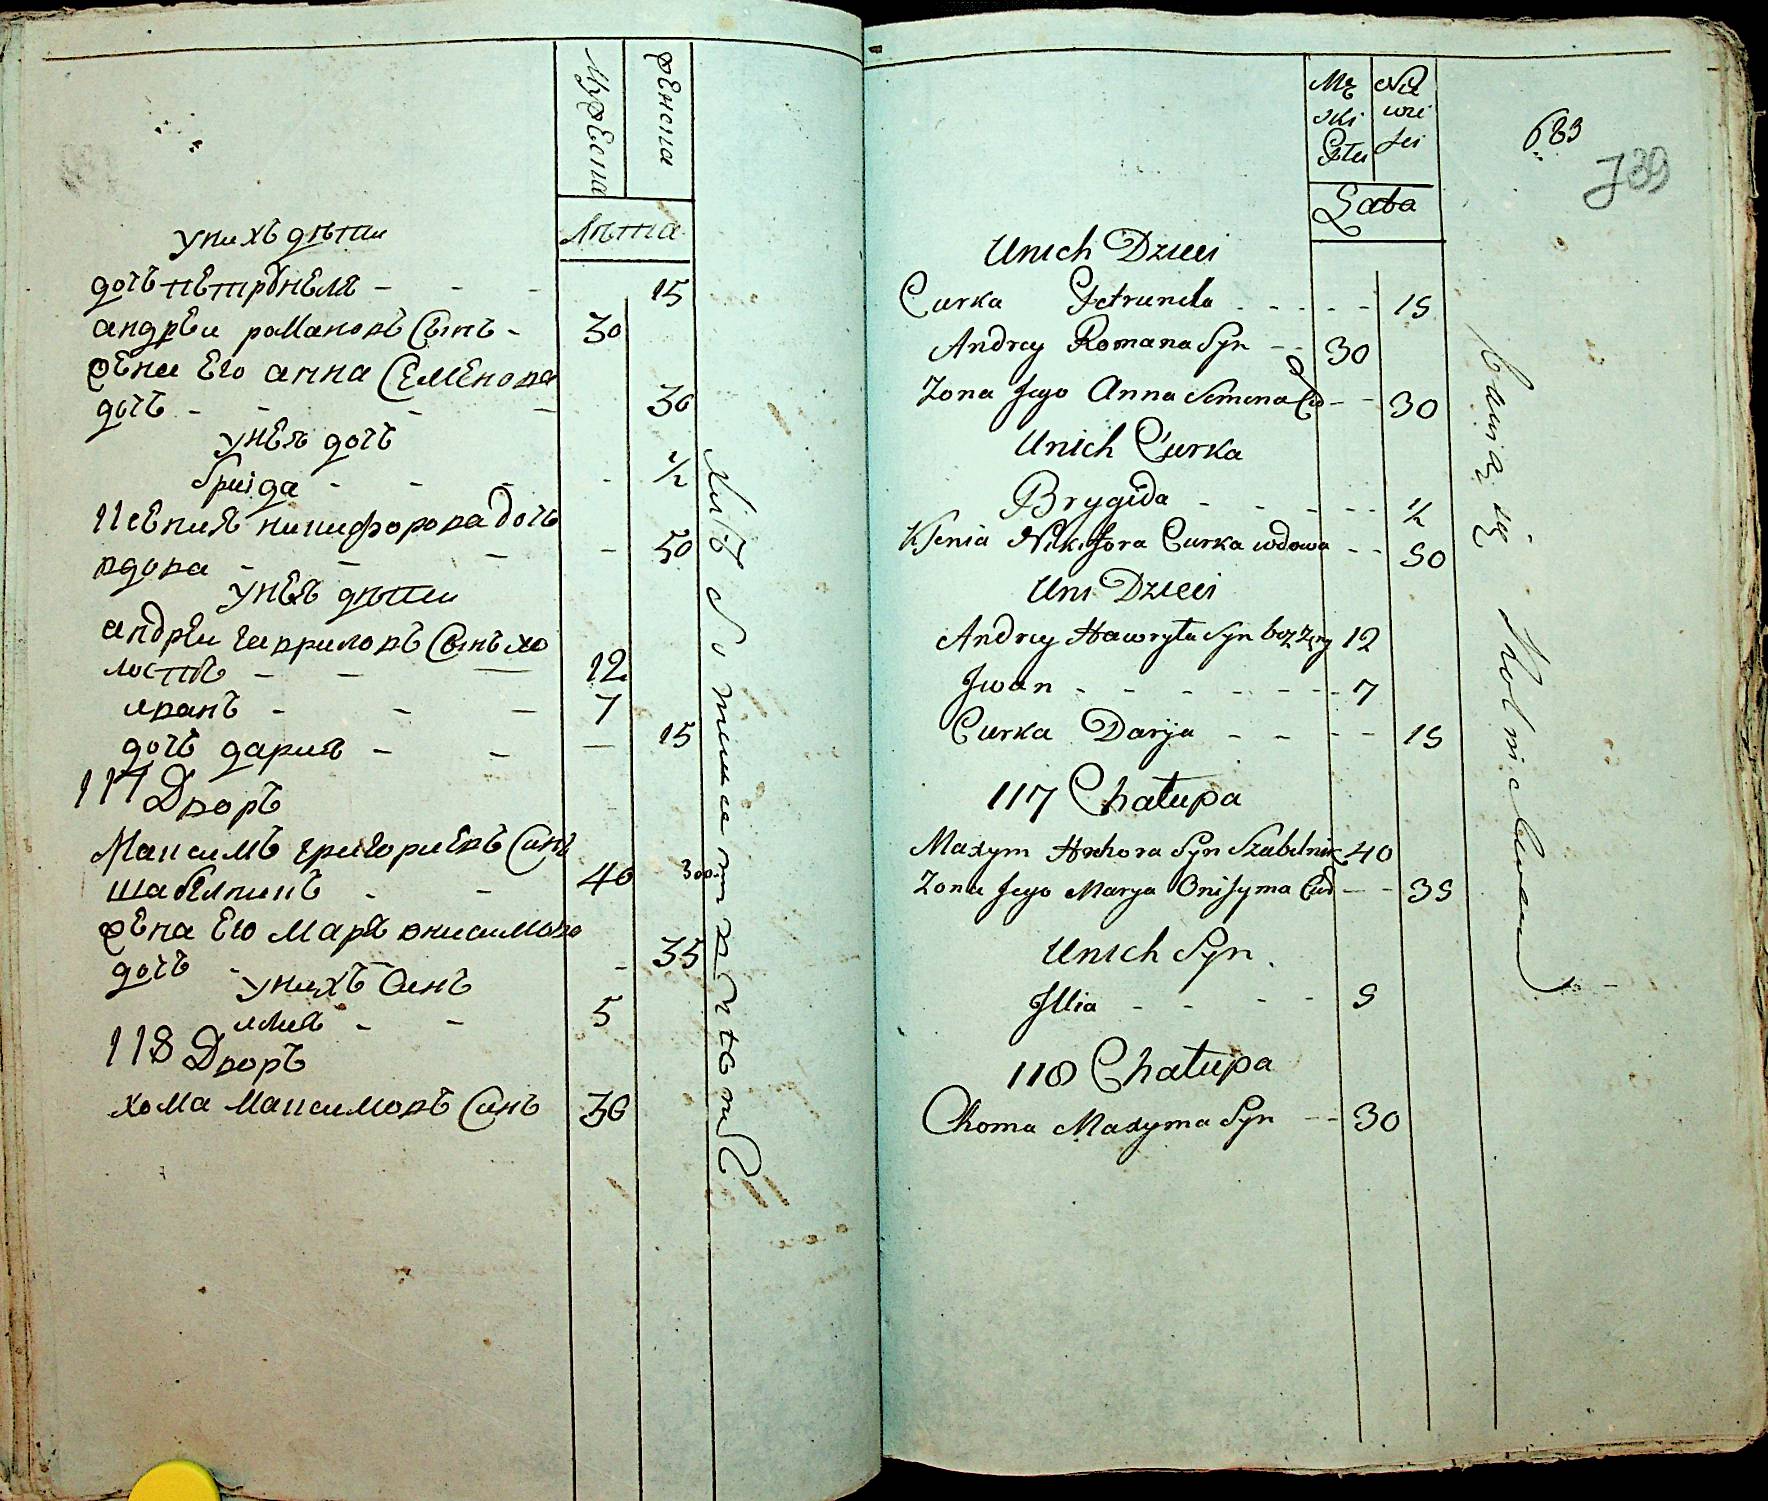 Мужеска
женска
лѣта
у нихъ дѣти
дочь петрунеля - - - 15
андрей романовъ сынъ - 30
жена его анна семенова
дочь - - - - 30
у нея дочь
бригида - - - - ½
ксения никифорова дочь
вдова - - - - 50
у нея дѣти
андрей гавриловъ сынъ хо
лостъ - - - 12
иванъ - - - 7
дочь дария - - - 15
117 Дворъ
Максимъ григориевъ сынъ
шабелникъ - - 40 300
жена его маря онисимова
дочь - - 35
у нихъ синъ
илия - - 5
118 Дворъ
хома максимовъ синъ 30
Mę Nie
ski wie
Płci sci
Lata
683
739
Unich Dzieci
Curka Petrunela - - - - - 15
Andrey Romana Syn - - 30
Zona Jego Anna Semena Cur - - 30
Unich Curka
Brygida - - - - - ½
Ksenia Nikifora Curka wdowa - - 50
Uni Dzieci
Andrey Hawryła Syn bez Żeny 12
Jwan - - - - - - - 7
Curka Darja - - - - 15
117 Chałupa
Maxym Hrehora Syn Szabelnik 40
Zona Jego Marya Onisyma Cur - - 35
Unich Syn
Jllia - - - - 5
118 Chałupa
Choma Maxyma Syn - - 30